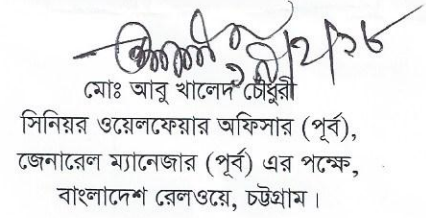 মোঃ আবু খালেদ চৌধুরী
সিনিয়র ওয়েলফেয়ার অফিসার (পূর্ব),
জেনারেল ম্যানেজার (পূর্ব) এর পক্ষে,
বাংলাদেশ রেলওয়ে, চট্টগ্রাম।